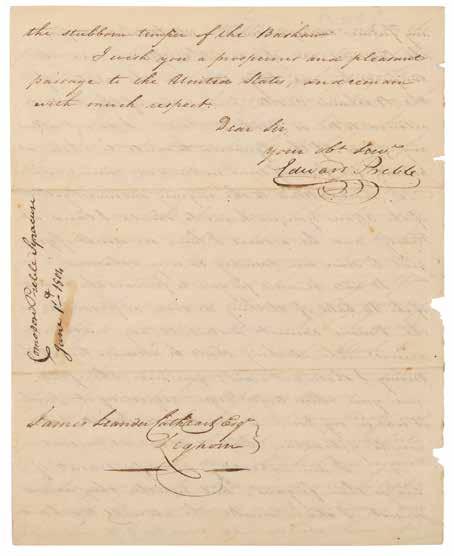 the stubborn temper of the Bashaw
I wish you a prosperous and pleasant
passage to the United States, and remain
with much respect.
Dear Sir,
your Obt. Servt.
Edward Preble
Comodore Preble Syracuse
June 1st 1804
James Leander Cathcart Esqr.
Leghorn